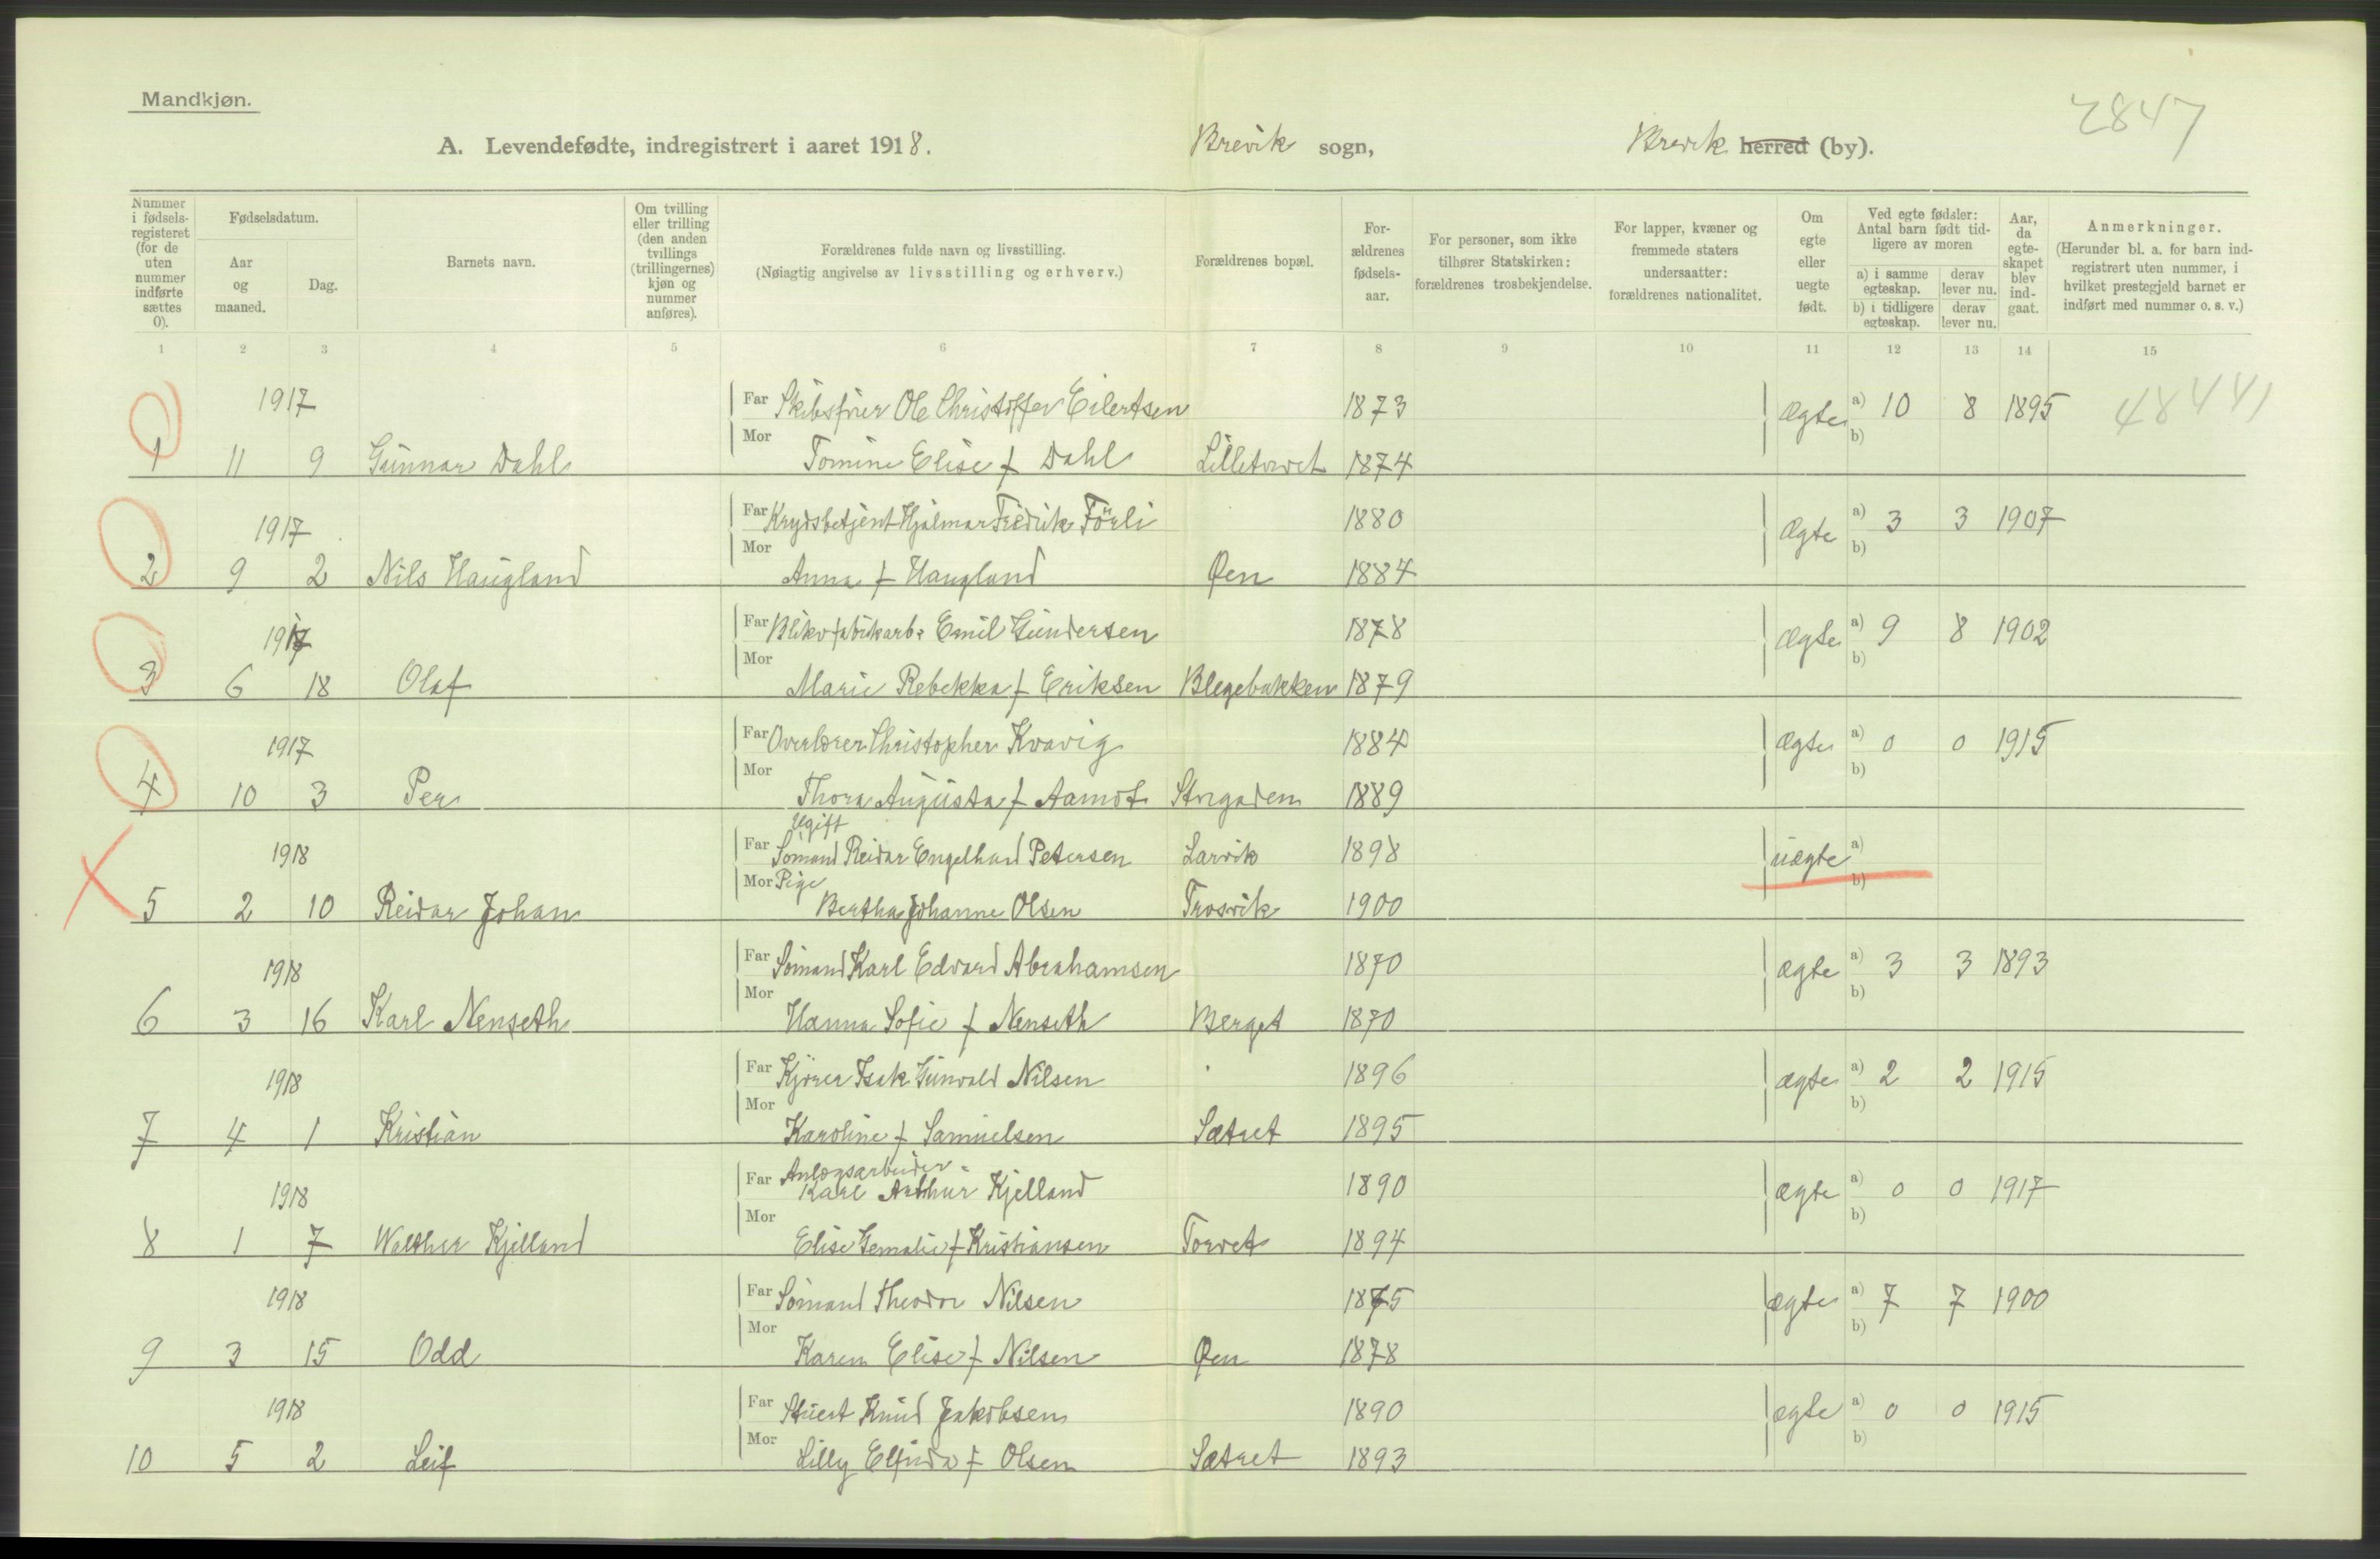 Mandkjøn.
2847
A. Levendefødte, indregistrert i aaret 1918. Brevik sogn, Brevik herred (by).
Nummer i fødsels-registeret (for de uten nummer indførte sættes 0).
Fødselsdatum.
Aar og maaned.
Dag.
Barnets navn.
Om tvilling eller trilling (den anden tvillings (trillingernes) kjøn og nummer anføres).
Forældrenes fulde navn og livsstilling.
(Nøiagtig angivelse av livsstilling og erhverv.)
Forældrenes bopæl.
For-ældrenes fødsels-aar.
For personer, som ikke tilhører Statskirken: forældrenes trosbekjendelse.
For lapper, kvæner og fremmede staters undersaatter: forældrenes nationalitet.
Om egte eller uegte født.
Ved egte fødsler: Antal barn født tid-ligere av moren
a) i samme egteskap.
derav lever nu.
b) i tidligere egteskap.
derav lever nu.
Aar, da egte-skapet blev ind-gaat.
Anmerkninger.
(Herunder bl. a. for barn ind-registrert uten nummer, i hvilket prestegjeld barnet er indført med nummer o. s. v.)
1 2 3 4 5 6 7 8 9 10 11 12 13 14 15
1917 Far Skibsfører Ole Christoffer Eilertsen 1873 Ægte a) 10 8 1895 48441
1 11 9 Gunnar Dahl Mor Tomine Elise f Dahl Lilletorvet 1874 b)
1917 Far Krydsbetjent Hjalmar Fredrik Förli 1880 Ægte a) 3 3 1907
2 9 2 Nils Haugland Mor Anna f Haugland Øen 1884 b)
1917 Far Emil Gundersen 1878 Ægte a) 9 8 1902
3 6 18 Olaf Mor Marie Rebekka f Eriksen Blegebakken 1879 b)
1917 Far Overlærer Christopher Kvavig 1884 Ægte a) 0 0 1915
4 10 3 Per Mor Thora Augusta f Aamot Storgaden 1889 b)
Ugift
1918 Far Sømand Reidar Engelhard Petersen Larvik 1898 uægte a)
5 2 10 Reidar Johan Mor Pige Bertha Johanne Olsen Trosvik 1900 b)
1918 Far Sømand Karl Edvard Abrahamsen 1870 ægte a) 3 3 1893
6 3 16 Karl Nenseth Mor Hanna Sofie f Nenseth Berget 1870 b)
1918 Far Kjører Isak Gunvald Nilsen 1896 ægte a) 2 2 1915
7 4 1 Kristian Mor Karoline f Samuelsen Sætret 1895 b)
Anlægsarbeider
1918 Far Karl Arthur Kjelland 1890 ægte a) 0 0 1917
8 1 7 Walther Kjelland Mor Elise f Kristiansen Torvet 1894 b)
1918 Far Sømand Theodor Nilsen 1875 ægte a) 7 7 1900
9 3 15 Odd Mor Karen Elise f Nilsen Øen 1878 b)
1918 Far Stuert Knud Jakobsen 1890 ægte a) 0 0 1915
10 5 2 Leif Mor Lilly Elfrida f Olsen Sætret 1893 b)